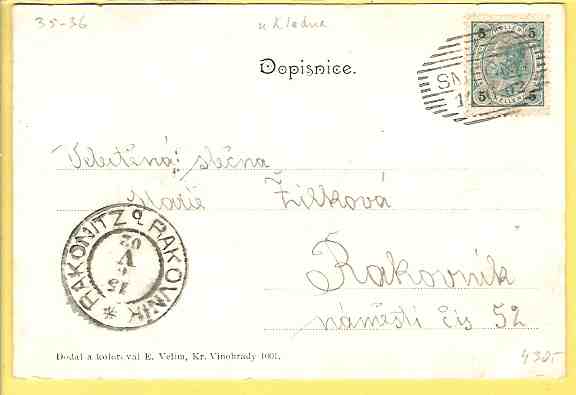 35-36
Dopisnice.
5 5
5 5
SM
Velectěná slečna
Marie Žilková
Rakovník
náměstí čís 52
RAKONITZ RAKOVNÍK
02
V
Dodal a koloroval E. Velim, Kr. Vinohrady 1001.